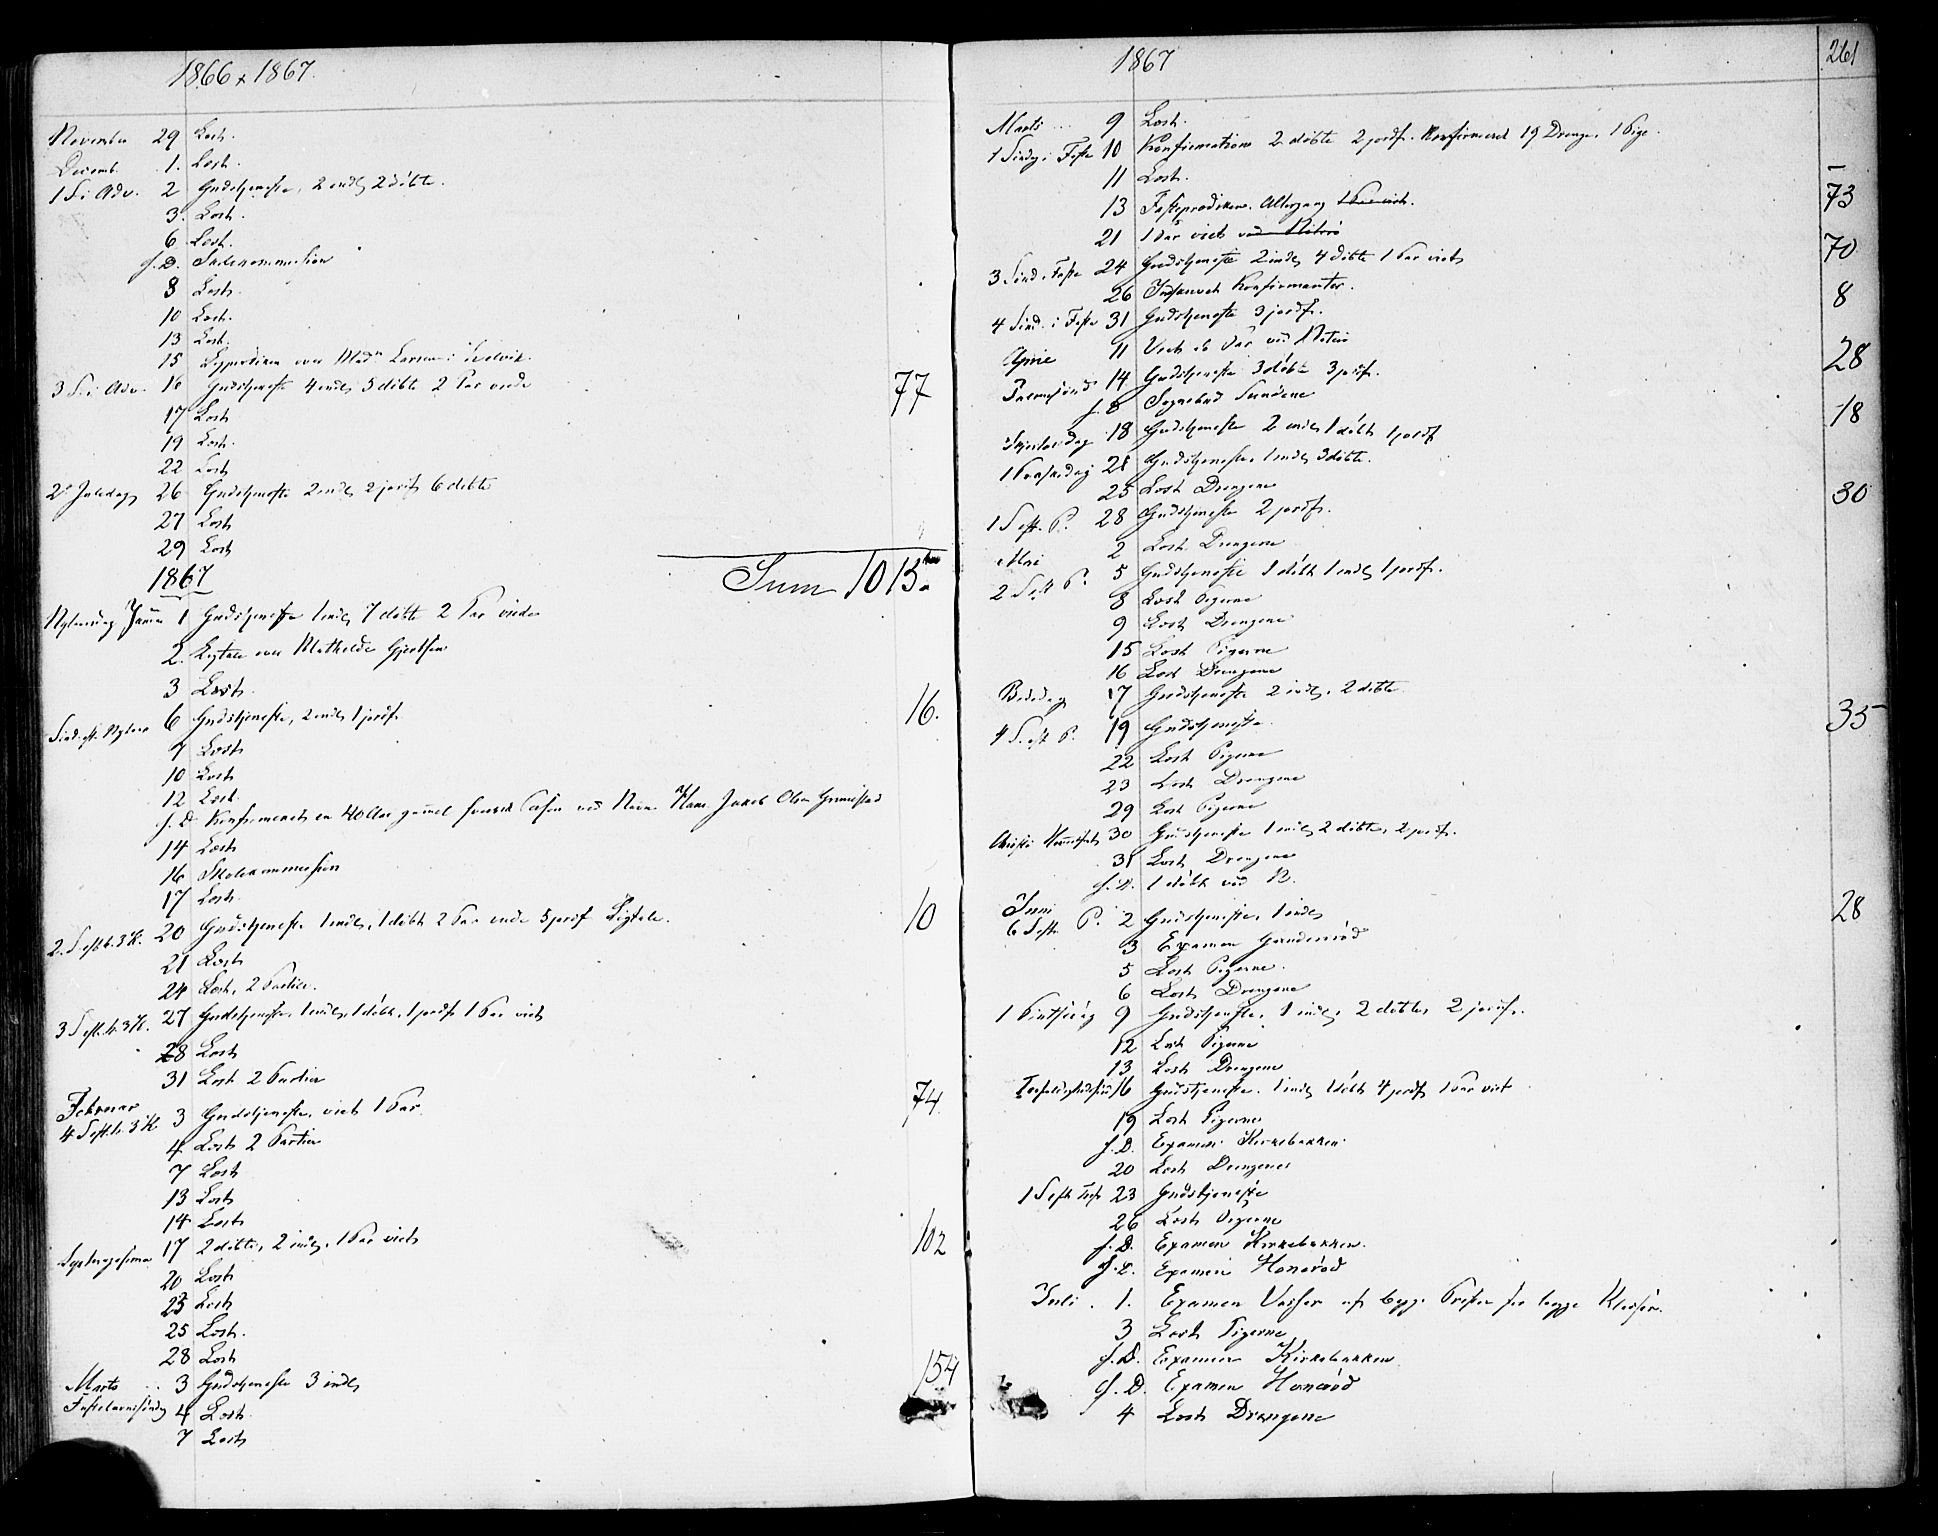 1866 & 1867.
November 29 Læst.
Decemb. 1. Læst.
1 S. i Adv. 2 Gudstjeneste, 2 indl, 2 döbte.
3. Læst.
6 Læst.
s. D. Skolecommission
8 Læst.
10 Læst.
13 Læst.
15 over Mad. Larsen i
3 S. i Adv. 16 Gudstjeneste 4 indl, 3 döbte 2 Par viede 77
17 Læst
19 Læst.
22 Læst
2 Juledag 26 Gudstjeneste 2 indl, 2 jordf 6 döbte
27 Læst
29 Læst
Sum 1013
1867
Nytaarsdag Januar 1 Gudstjeneste 1 indl, 7 döbte 2 Par viede
2. Ligtale over Mathilde Gjertsen
3 Læst.
Sönd. eft. Nytaar 6 Gudstjeneste, 2 indl, 1 jordf. 16.
7 Læst
10 Læst
12 Læst.
s. D Konfirmeret en 40 Aar gammel svensk ved Navn Jakob Olsen
14 Læst
16 Skolecommission
17 Læst.
2. S. eft. h. 3 K. 20 Gudstjeneste 1 indl, 1 döbt 2 Par viede 5 jordf Ligtale. 10
21 Læst
24 Læst, 2 Partier.
3 S. eft. h. 3 K. 27 Gudstjeneste, 1 indl, 1 döbt, 1 jordf 1 Par viet
28 Læst
31 Læst 2 Partier
Februar
4 S. eft. h. 3 K 3 Gudstjeneste, viet 1 Par. 74.
4 Læst 2 Partier
7 Læst
13 Læst
14 Læst
Septuagesima 17 2 döbte, 2 indl, 1 Par viet 102
20 Læst
23 Læst
25 Læst.
28 Læst
Marts 3 Gudstjeneste 3 indl, 154
Fastelavnsöndag 4 Læst.
7 Læst
1867 261
Marts 9 Læst.
1 Söndag i Faste 10 Konfirmation 2 döbte 2 jordf. Konfirmeret 19 Drenge, 1 Pige.
11 Læst. –
13 Fasteprædiken. Altergang 1 Par viet. 73
21 1 Par viet ved
3 Sönd. i Faste 24 Gudstjeneste 2 indl, 4 döbte 1 Par viet 70
26 Indskrevet Konfirmanter.
4 Sönd. i Faste 31 Gudstjeneste 3 jordf. 8
April 11 Viet et Par ved
Palmesönd 14 Gudstjeneste 3 döbte 3 jordf. 28
s. D Sognebud
Skjærtorsdag 18 Gudstjeneste 2 indl, 1 döbt 1 jordf 18
1 Paaskedag 21 Gudstjeneste, 1 indl, 3 döbte.
25 Læst Drengene
1 S. eft. P. 28 Gudstjeneste 2 jordf. 30
Mai 2 Læst Drengene
2 S. eft P. 5 Gudstjeneste 1 döbt 1 indl, 1 jordf.
8 Læst Pigerne
9 Læst Drengene
15 Læst Pigerne
16 Læst Drengene
Bededag 17 Gudstjeneste 2 indl, 2 döbte
4 S. eft P. 19 Gudstjeneste. 35
22 Læst Pigerne
23 Læst Drengene
29 Læst Pigerne
Christi Himmelfart 30 Gudstjeneste 1 indl, 2 döbte, 2 jordf.
31 Læst Drengene
s. D. 1 döbt ved N.
Juni
6 S. eft. P. 2 Gudstjeneste, 1 indl, 28
3 Examen
5 Læst Pigerne.
6 Læst Drengene
1 Pintsedag 9 Gudstjeneste, 1 indl, 2 döbte, 2 jordf.
12 Læst Pigerne
13 Læst Drengene
16 Gudstjeneste. 1 indl, 1 döbt 4 jordf 1 Par viet
19 Læst Pigerne
s. D. Examen Kirkebakken.
20 Læst Drengene
1 S. eft Tref 23 Gudstjeneste
26 Læst Pigerne
s. D. Examen Kirkebakken.
s. D. Examen Honeröd
Juli. 1. Examen Vasser af begge Prester for begge Klasser.
3 Læst Pigerne
s. D. Examen Kirkebakken
s. D. Examen Honeröd
4 Læst Drengene